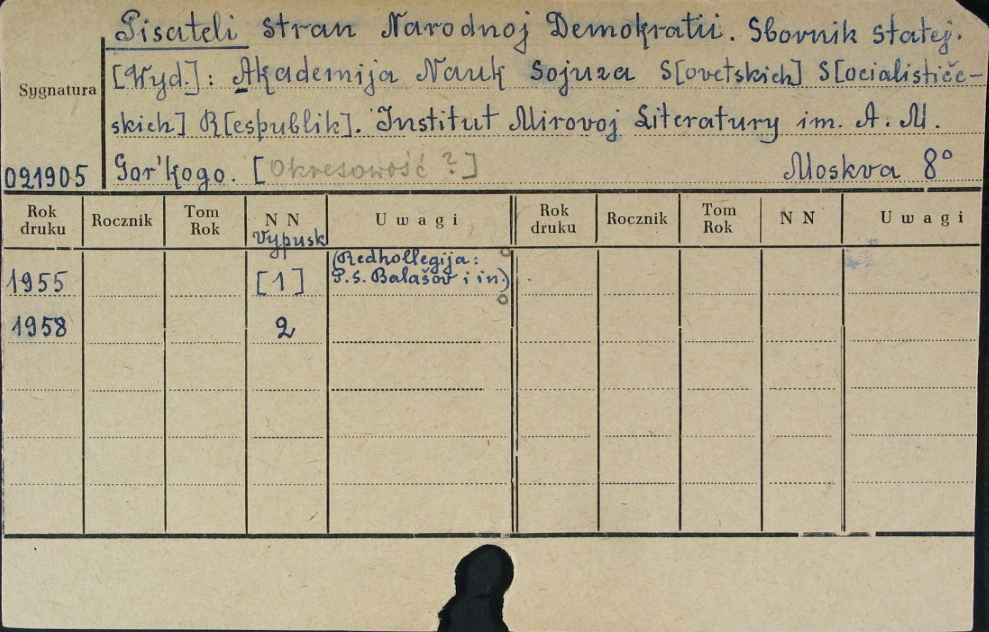 Pisateli stran Narodnoj Demokratii. Sbornik statej.
[Wyd.]: Akademija Nauk Sojuza S[ovetskich] S[ocialističe-
Sygnatura
skich] R[espublik]. Institut Mirovoj Literatury im. A. M.
021905 Gor'kogo. [Okresowość ?] Moskva 8°
Rok druku Rocznik Tom Rok N N Uwagi Rok druku Rocznik Tom Rok N N Uwagi
Vypusk
(Redkollegija:
1955 [1] P.S. Balašov i in.)
1958 2